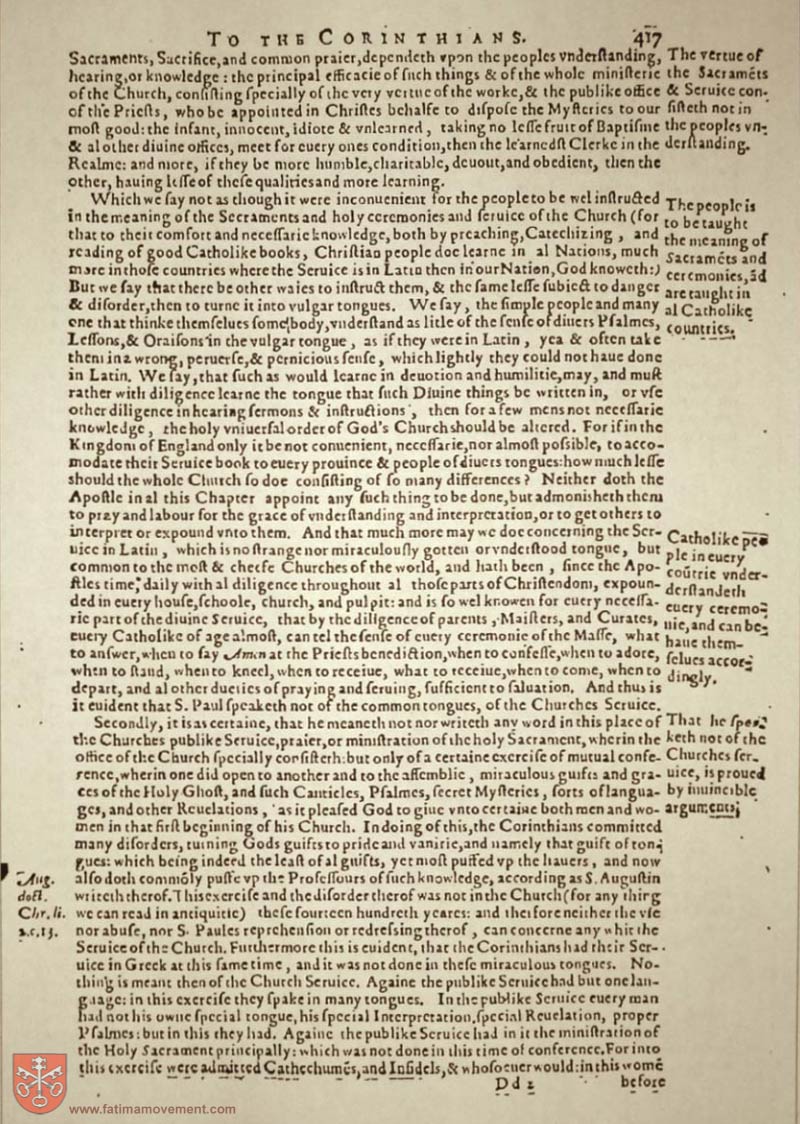 TO THE CORINTHIANS. 417
Sacraments, Sacrifice, and common praier, dependeth vpon the peoples vnderſtanding,
hearing, or knowledge: the principal efficacie of ſuch things & of the whole miniſterie
of the Church, conſiſting ſpecially of the very vertue of the worke, & the publike office
of the Prieſts, who be appointed in Chriſtes behalfe to diſpoſe the Myſteries to our
moſt good: the infant, innocent, idiote & vnlearned, taking no leſſe fruit of Baptiſme
& al other diuine offices, meet for euery ones condition, then the learnedſt Clerke in the
Realme: and more, if they be more humble, charitable, deuout, and obedient, then the
other, hauing leſſe of theſe qualities and more learning.
The vertue of
the Sacramẽts
& Seruice con-
ſiſteth not in
the peoples vn-
derſtanding.
Which we ſay not as though it were inconuenient for the people to be wel inſtructed
in the meaning of the Sacraments and holy ceremonies and ſeruice of the Church (for
that to their comfort and neceſſarie knowledge, both by preaching, Catechizing, and
reading of good Catholike books, Chriſtian people doe learne in al Nations, much
more in thoſe countries where the Seruice is in Latin then in our Nation, God knoweth:)
But we ſay that there be other waies to inſtruct them, & the ſame leſſe ſubiect to danger
& diſorder, then to turne it into vulgar tongues. We ſay, the ſimple people and many
one that thinke themſelues ſome body, vnderſtand as litle of the ſenſe of diuers Pſalmes,
Leſſons, & Oraiſons in the vulgar tongue, as if they were in Latin, yea & often take
them in a wrong, peruerſe, & pernicious ſenſe, which lightly they could not haue done
in Latin. We ſay, that ſuch as would learne in deuotion and humilitie, may, and muſt
rather with diligence learne the tongue that ſuch Diuine things be written in, or vſe
other diligence in hearing ſermons & inſtructions, then for a few mens not neceſſarie
knowledge, the holy vniuerſal order of God's Church should be altered. For if in the
Kingdom of England only it be not conuenient, neceſſarie, nor almoſt poſſible, to acco-
modate their Seruice book to euery prouince & people of diuers tongues: how much leſſe
should the whole Church ſo doe conſiſting of ſo many differences? Neither doth the
Apoſtle in al this Chapter appoint any ſuch thing to be done, but admonisheth them
to pray and labour for the grace of vnderſtanding and interpretation, or to get others to
interpret or expound vnto them. And that much more may we doe concerning the Ser-
uice in Latin, which is no ſtrange nor miraculouſly gotten or vnderſtood tongue, but
common to the moſt & cheefe Churches of the world, and hath been, ſince the Apo-
ſtles time, daily with al diligence throughout al thoſe parts of Chriſtendom, expoun-
ded in euery houſe, ſchoole, church, and pulpit: and is ſo wel knowen for euery neceſſa-
rie part of the diuine Seruice, that by the diligence of parents, Maiſters, and Curates,
euery Catholike of age almoſt, can tel the ſenſe of euery ceremonie of the Maſſe, what
to anſwer, when to ſay Amen at the Prieſts benediction, when to confeſſe, when to adore,
when to ſtand, when to kneel, when to receiue, what to receiue, when to come, when to
depart, and al other dueties of praying and ſeruing, ſufficient to ſaluation. And thus is
it euident that S. Paul ſpeaketh not of the common tongues, of the Churches Seruice.
The people is
to be taught
the meaning of
Sacramẽts and
ceremonies, ãd
are taught in
al Catholike
countries.
Catholike peo
ple in euery
coũtrie vnder-
derſtandeth
euery ceremo-
nie, and can be-
haue them-
ſelues accor-
dingly.
Secondly, it is as certaine, that he meaneth not nor writeth any word in this place of
the Churches publike Seruice, praier, or miniſtration of the holy Sacrament, wherin the
office of the Church ſpecially conſiſteth: but only of a certaine exerciſe of mutual confe-
rence, wherin one did open to another and to the aſſemblie, miraculous guifts and gra-
ces of the Holy Ghoſt, and ſuch Canticles, Pſalmes, ſecret Myſteries, ſorts of langua-
ges, and other Reuelations, as it pleaſed God to giue vnto certaine both men and wo-
men in that firſt beginning of his Church. In doing of this, the Corinthians committed
many diſorders, turning Gods guifts to pride and vanitie, and namely that guift of ton-
gues: which being indeed the leaſt of al guifts, yet moſt puffed vp the hauers, and now
alſo doth commõly puffe vp the Profeſſours of ſuch knowledge, according as S. Auguſtin
writeth therof. This exerciſe and the diſorder therof was not in the Church (for any thing
we can read in antiquitie) theſe fourteen hundreth yeares: and therfore neither the vſe
nor abuſe, nor S. Paules reprehenſion or redreſsing therof, can concerne any whit the
Seruice of the Church. Furthermore this is euident, that the Corinthians had their Ser-
uice in Greek at this ſame time, and it was not done in theſe miraculous tongues. No-
thing is meant then of the Church Seruice. Againe the publike Seruice had but one lan-
guage: in this exerciſe they ſpake in many tongues. In the publike Seruice euery man
had not his owne ſpecial tongue, his ſpecial Interpretation, ſpecial Reuelation, proper
Pſalmes: but in this they had. Againe the publike Seruice had in it the miniſtration of
the Holy Sacrament principally: which was not done in this time of conference. For into
this exerciſe were admitted Cathechumẽs, and Infidels, & whoſoeuer would: in this womẽ
That he ſpea-
keth not of the
Churches ſer-
uice, is proued
by inuincible
arguments.
Aug.
doct.
Chr. li.
2.c.13.
Dd 2 before
www.fatimamovement.com